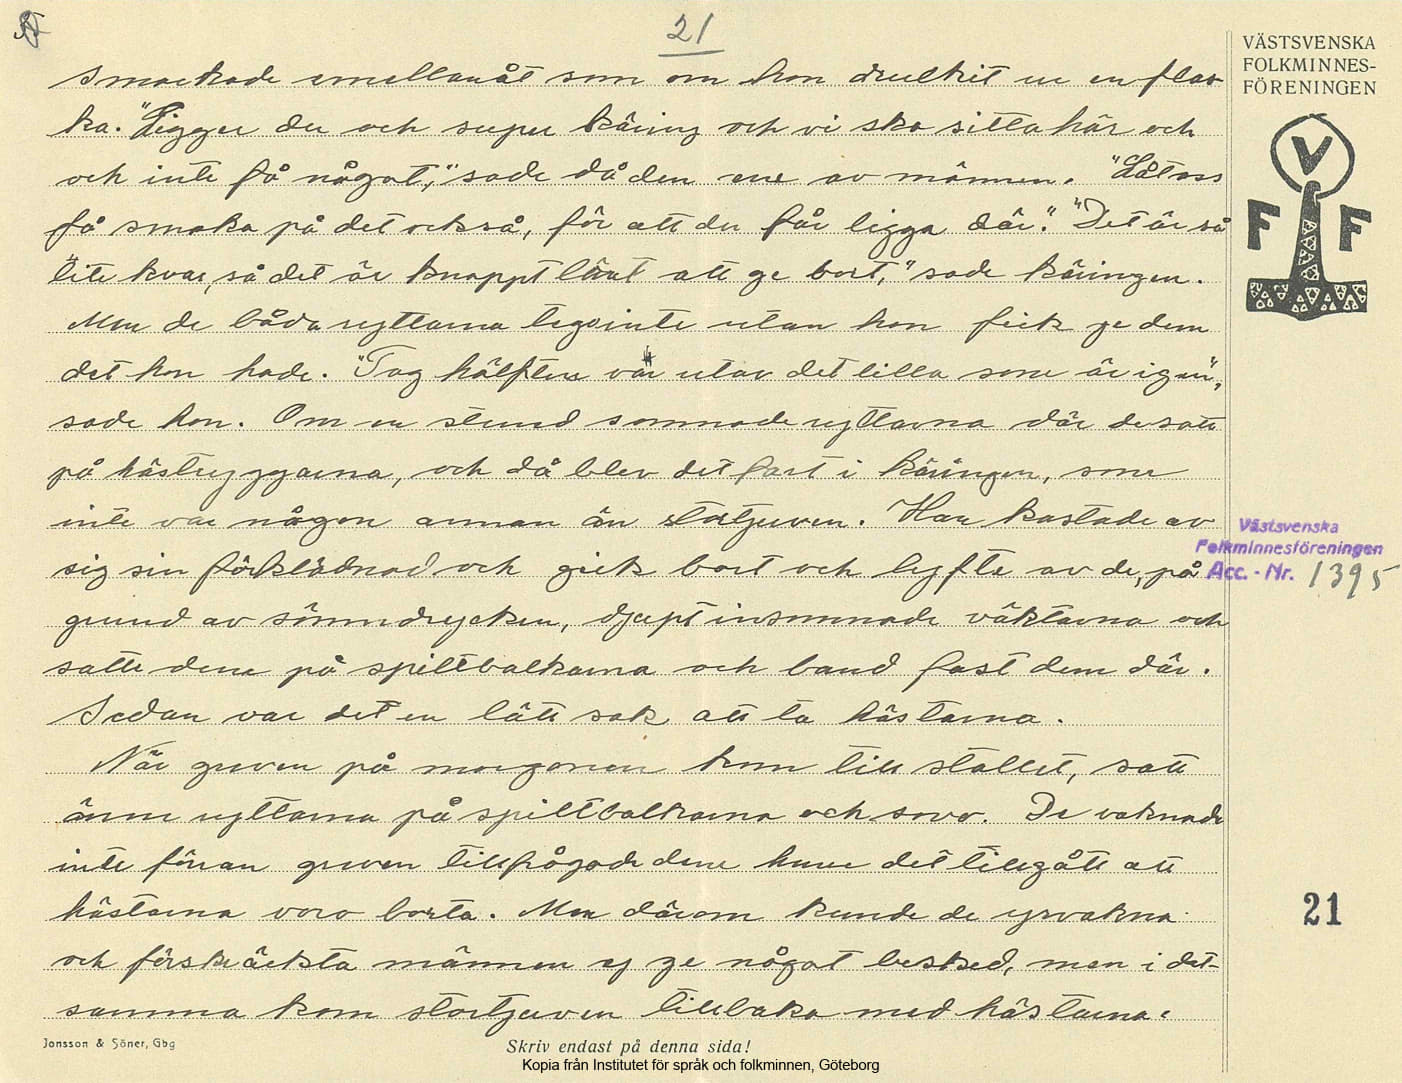 21
VÄSTSVENSKA
FOLKMINNES-
FÖRENINGEN
V
F F
smackade emellanåt som om hon druckit ur en flas-
ka. "Ligger du och super käring och vi ska sitta här och
och inte få något," sade då den ene av männen. "Låt oss
få smaka på det också, för att du får ligga där." "Det är så
lite kvar, så det är knappt lönt att ge bort," sade käringen.
Men de båda ryttarna tego inte utan hon fick ge dem
det hon hade. "Tag hälften var utav det lilla som är igen",
sade hon. Om en stund somnade ryttarna där de satt
på hästryggarna, och då blev det fart i käringen, som
inte var någon annan än stortjuven. Han kastade av
sig sin förklädnad och gick bort och lyfte av de, på
grund av sömndrycken, djupt insomnade väktarna och
satte dem på spiltbalkarna och band fast dem där.
Sedan var det en lätt sak att ta hästarna.
När greven på morgonen kom till stallet, satt
ännu ryttarna på spiltbalkarna och sovo. De vaknade
inte förran greven tillfrågade dem huru det tillgått att
hästarna voro borta. Men därom kunde de yrvakna
och förskräckta männen ej ge något besked, men i det-
samma kom stortjuven tillbaka med hästarna.
Västsvenska
Folkminnesföreningen
Acc. - Nr. 1395
21
Jonsson & Söner, Gbg
Skriv endast på denna sida!
Kopia från Institutet för språk och folkminnen, Göteborg